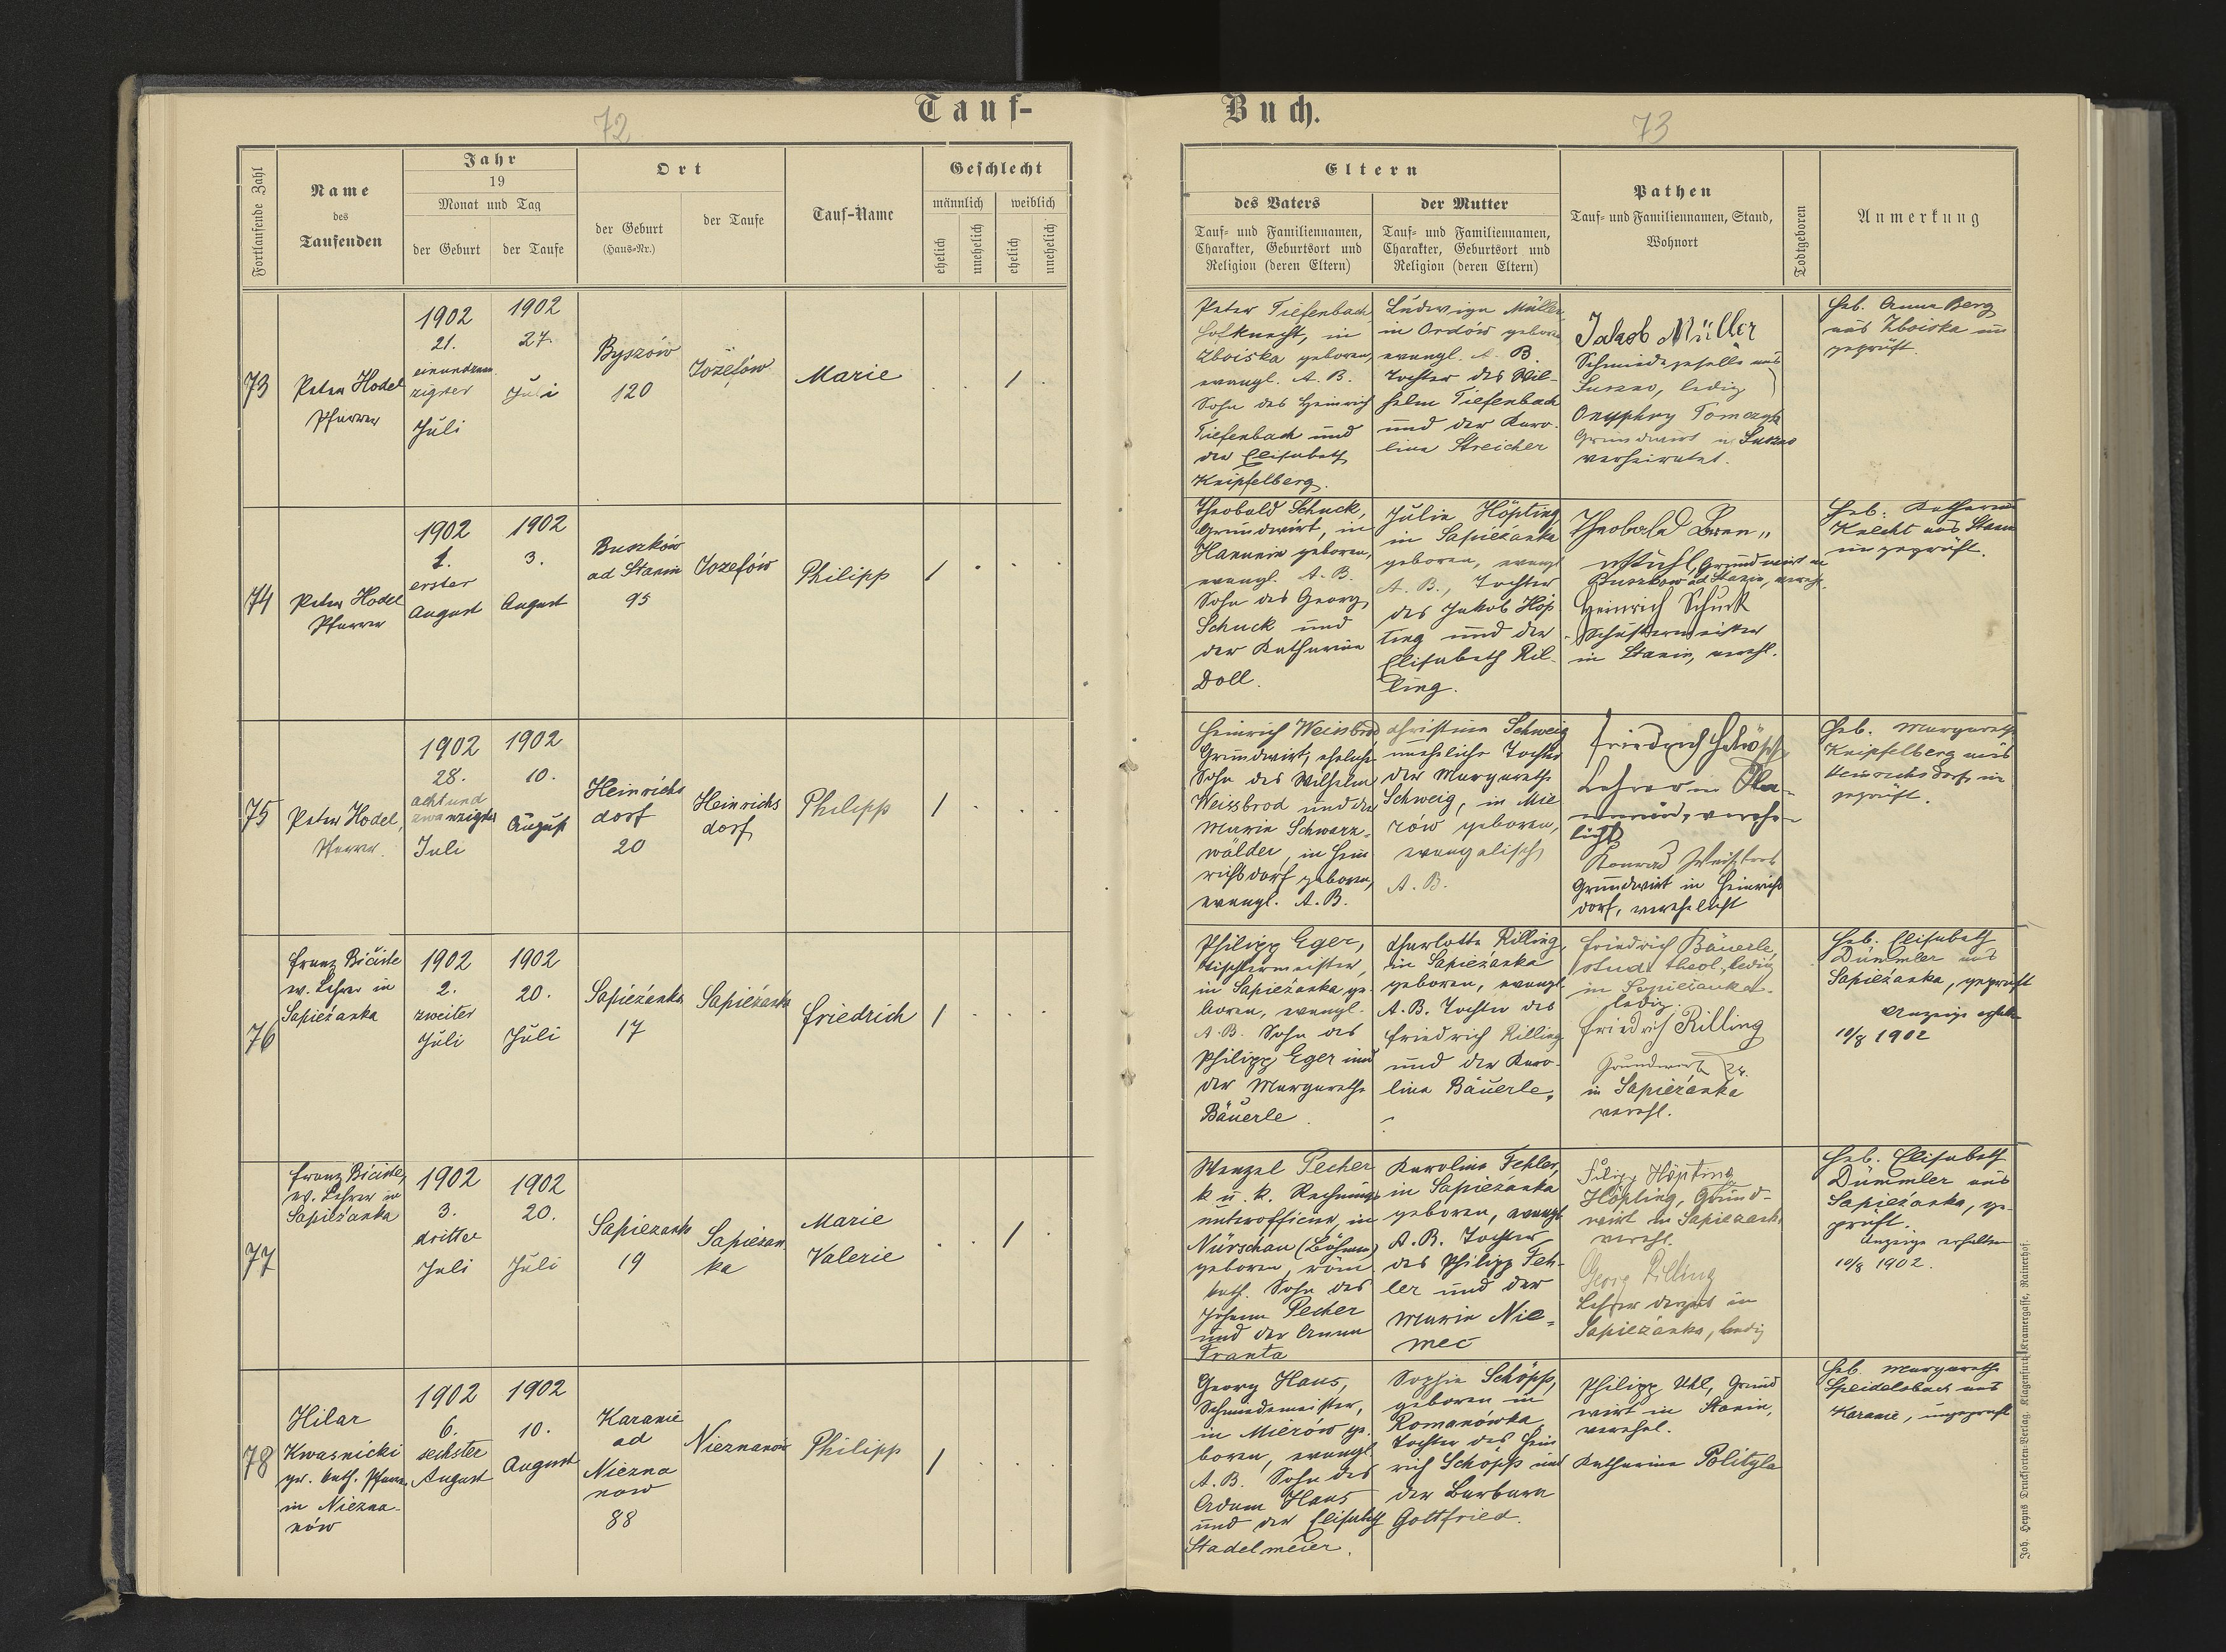 Tauf-
Buch.
72
73
Fortlaufende Zahl
Name
des
Taufenden
Jahr
19
Monat und Tag
der Geburt
der Taufe
Ort
der Geburt
(Haus-Nr.)
der Taufe
Tauf-Name
Geschlecht
männlich
weiblich
ehelich
unehelich
ehelich
unehelich
Eltern
des Vaters
Tauf- und Familiennamen,
Charakter, Geburtsort und
Religion (deren Eltern)
der Mutter
Tauf- und Familiennamen,
Charakter, Geburtsort und
Religion (deren Eltern)
Pathen
Tauf- und Familiennamen, Stand,
Wohnort
Todtgeboren
Anmerkung
73
Peter Hodel
Pfarrer
1902
21.
einundzwan
zigster
Juli
1902
27.
Juli
Byszów
120
Józefów
Marie
/
Peter Tiefenbach
Hofknecht, in
Zboiska geboren,
evangl. A. B.
Sohn des Heinrich
Tiefenbach und
der Elisabeth
Knipfelberg.
Ludwiga Müller,
in Ordów geboren
evangl. A. B.
Tochter des Wil-
helm Tiefenbach
und der Karo-
line Streicher
Jakob Müller
Schmiedgeselle aus
Suszno, ledig
Onyphry Tomczyk
Grundwirt in Suszno
verheiratet.
Heb. Anna Berg
aus Zboiska un
geprüft.
74
Peter Hodel
Pfarrer
1902
1.
erster
August
1902
3.
August
Buszków
ad Stanin
95
Józefów
Philipp
/
Theobald Schuck,
Grundwirt, in
Hanunin geboren,
evangl. A. B.
Sohn des Georg
Schuck und
der Katharina
Doll.
Julie Höpting
in Sapieżanka
geboren, evangl
A. B., Tochter
des Jakob Höp
ting und der
Elisabeth Ril-
ling.
Theobald
Grundwirt in
Buszkow ad Stanin, verehl.
Heinrich Schuck
Schustermeister
in Stanin, verehl.
Heb. Katharina
Knecht aus Stanin
ungeprüft.
75
Peter Hodel,
Pfarrer.
1902
28.
achtund
zwanzigster
Juli
1902
10.
August
Heinrichs
dorf
20
Heinrichs
dorf
Philipp
/
Heinrich Weissbrod
Grundwirt, ehelich
Sohn des Wilhelm
Weissbrod und der
Marie Schwarz-
wälder, in Hein
richsdorf geboren,
evangl. A. B.
Christina Schweig
uneheliche Tochter
der Margarethe
Schweig, in Mie
rów geboren,
evangelisch
A. B.
Friedrich Schöpf
Lehrer in
verehe-
licht
Konrad Weissbrod
Grundwirt in Heinrichs
dorf, verehelicht
Heb. Margareth
Knipfelberg aus
Heinrichsdorf, un
geprüft.
76
Franz Bičiste
ev. Lehrer in
Sapieżanka
1902
2.
zweiter
Juli
1902
20.
Juli
Sapieżanka
17
Sapieżanka
Friedrich
/
Philipp Eger,
Tischlermeister,
in Sapieżanka ge
boren, evangl.
A. B. Sohn des
Philipp Eger und
der Margarethe
Bäuerle.
Charlotte Rilling,
in Sapieżanka
geboren, evangl
A. B. Tochter des
Friedrich Rilling
und der Karo-
line Bäuerle.
Friedrich Bäuerle,
stud. theol., ledig
in Sapieżanka.
ledig.
Friedrich Rilling
Grundwirt 24.
in Sapieżanka
verehl.
Heb. Elisabeth
Dümmler aus
Sapieżanka, geprüft
Anzeige erhalten
10/8 1902
77
Franz Bičiste,
ev. Lehrer in
Sapieżanka
1902
3.
dritter
Juli
1902
20.
Juli
Sapieżanka
19
Sapieżan
ka
Marie
Valerie
/
Wenzel Pecher
k. u. k. Rechnungs
unterofficier, in
Nürschau (Böhmen)
geboren, röm.
kath. Sohn des
Johann Pecher
und der Anna
Franta
Karoline Fehler,
in Sapieżanka
geboren, evangl
A. B. Tochter
des Philipp Feh-
ler und der
Marie Nie-
mec
Filipp Höpting
Höpting, Grund-
wirt in Sapieżanka
verehl.
Georg Rilling
Lehrer derzeit in
Sapieżanka, ledig
Heb. Elisabeth
Dümmler aus
Sapieżanka, ge-
prüft.
Anzeige erhalten
10/8 1902.
78
Hilar
Kwasnicki
gr. kath. Pfarrer
in Niezna-
nów
1902
6.
sechster
August
1902
10.
August
Karanie
ad
Niezna
now
88
Nieznanów
Philipp
/
Georg Haus,
Schmiedemeister,
in Mierów ge-
boren, evangl
A. B. Sohn des
Adam Haus
und der Elisabeth
Stadelmeier.
Sophie Schöpp,
geboren in
Romanówka
Tochter des Hein
rich Schöpp und
der Barbara
Gottfried.
Philipp Uhl, Grund
wirt in Stanin,
verehel.
Katharina Polityla
Heb. Margarethe
Speidelsbach aus
Karanie, ungeprüft
Joh. Heyns Drucksorten-Verlag, Klagenfurt, Kramergasse, Rainerhof.